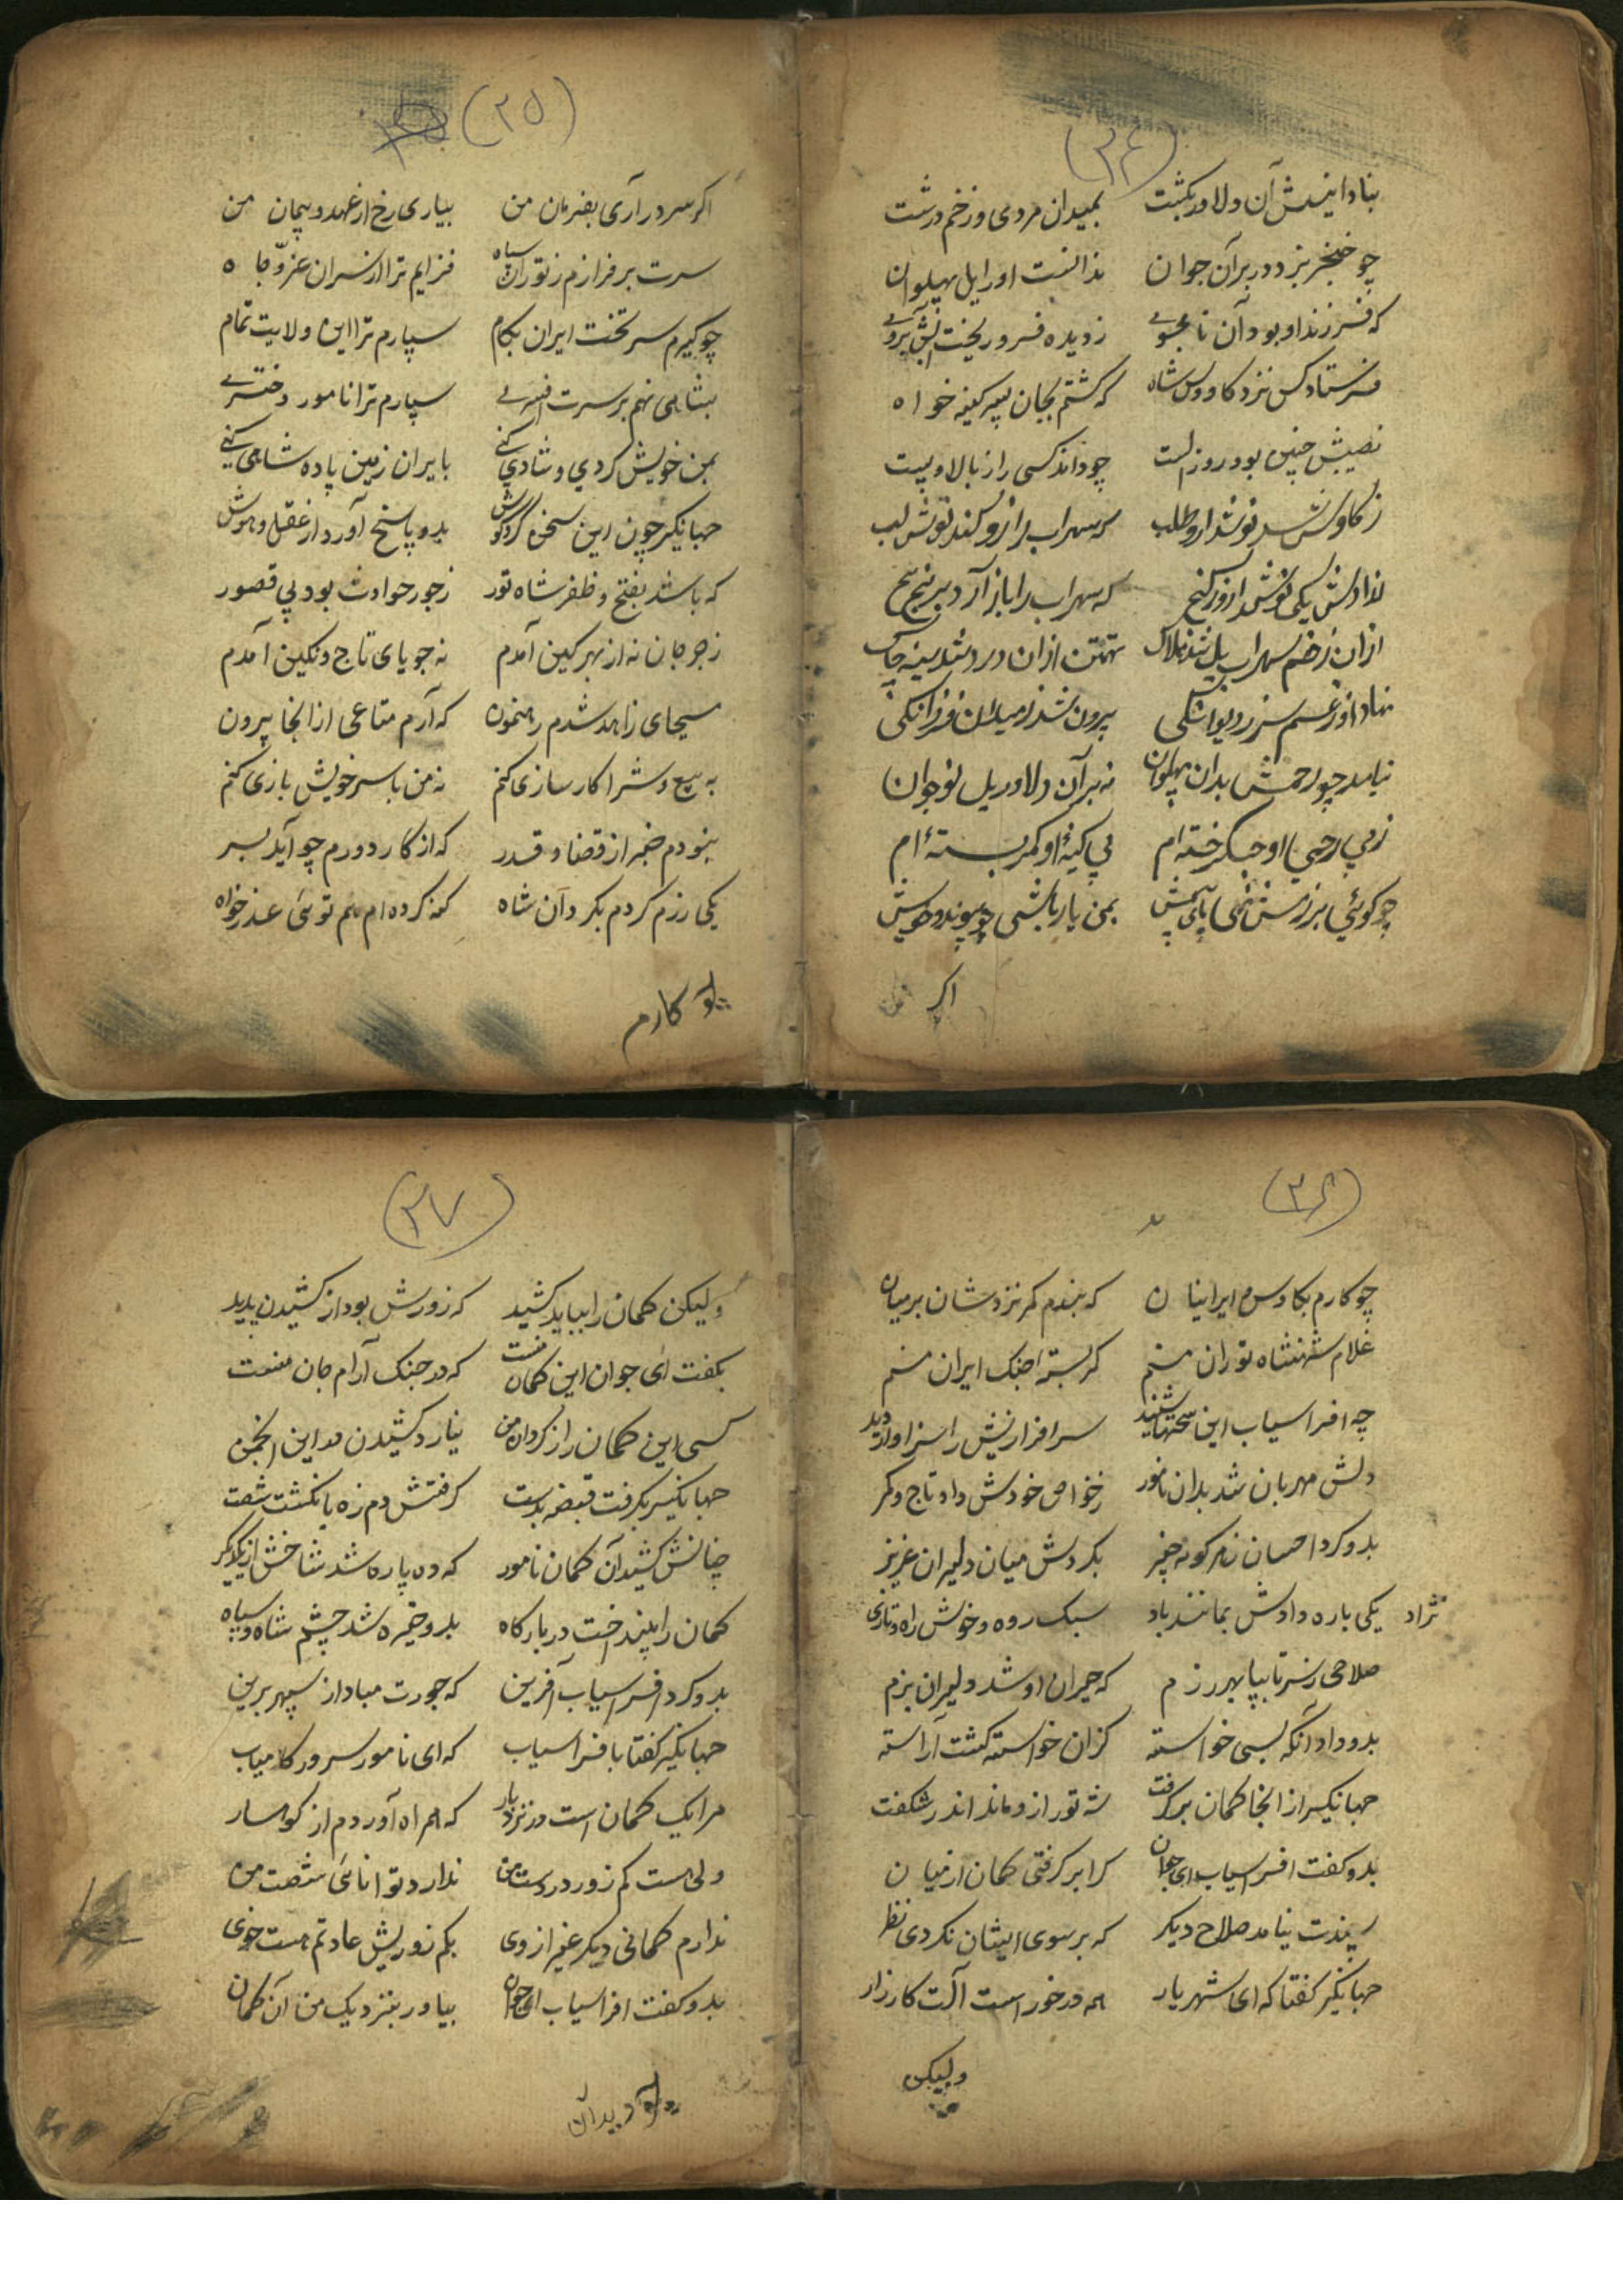 (۲۴)
بنادانیش آن دلاور بکشت بمیدان مردی و زخم درشت
چو خنجر بزد در بر آن جوان ندانست او را یل پهلوان
که فرزند او بود آن نامجوی ز دیده فرو ریخت آبروی
فرستاد کس نزد کاوس شاه که کشتم بجان پسر کینه خواه
نصیبش چنین بود روز الست چو داند کسی راز بالا و پست
ز کاوس شد نوشدارو طلب که سهراب را زو کند نوش لب
ندادش یکی نوشدارو ز گنج که سهراب را باز آرد برنج
ازان زخم سهراب یل شد هلاک تهمتن ازان درد شد سینه چاک
نهاد او ز غم سر بدیوانگی برون شد ز میدان فرزانگی
نیامد چو رحمش بدان پهلوان نه بر آن دلاور یل نوجوان
ز بی رحمی او جگر خسته ام پی کینهٔ او کمر بسته ام
چو کوئی برزمش نهی پای پیش بمن یار باشی چو پیوند و خویش
اکر
(۲۵)
اکر سر در آری بفرمان من نیاری رخ از عهد و پیمان من
سرت برفرازم ز توران سپاه فزایم ترا از سران عز و جاه
چو گیرم سر تخت ایران بکام سپارم ترا این ولایت تمام
بشاهی نهم بر سرت افسری سپارم ترا نامور دختری
بمن خویش کردی و شادی کنی بایران زمین پادشاهی کنی
جهانگیر چون این سخن کرد کوش بدو پاسخ آورد از عقل و هوش
که باشد بفتح و ظفر شاه تور ز جور حوادث بود بی قصور
ز جرجان نه از بهر کین آمدم نه جویای تاج و نکین آمدم
مسیحای زاهد شدم رهنمون که آرم متاعی از انجا برون
به بیع و شرا کار سازی کنم نه من با سر خویش بازی کنم
نبودم خبر از قضا و قدر که از کار دورم چو آید بسر
یکی رزم کردم بکرد آن شاه کنه کرده ام هم توئی عذر خواه
چو کارم
(۲۶)
چو کارم بکاوس و ایرانیان که بندم کمر نزدشان بر میان
غلام شهنشاه توران منم کمر بسته جنک ایران منم
چه افراسیاب این سخنها شنید سرافرازیش را سزاوار دید
دلش مهربان شد بدان نامور ز خواص خودش داد تاج و کمر
بدو کرد احسان ز هر کونه چیز بکردش میان دلیران عزیز
یکی باره دادش بمانند باد سبک روه و خوش راه و تازی نژاد
صلاحی ز سر تا بپا بهر رزم که حیران او شد دلیران بزم
بدو داد آنکه بسی خواسته کزان خواسته کشت آراسته
جهانکیر از انجا کمان برکرفت شه تور ازو ماند اندر شکفت
بدو کفت افراسیاب ای جوان کرا بر کرفتی کمان از میان
پسندت نیامد صلاح دیکر که بر سوی ایشان نکردی نظر
جهانکیر کفتا که ای شهریار همه در خور است آلت کارزار
ولیکن
(۲۷)
ولیکن کمان را بباید کشید که زورش بود از کشیدن پدید
بکفت ای جوان این کمان منست که در جنک آرام جان منست
کسی این کمان را ز کردان من نیارد کشیدن در این انجمن
جهانکیر بکرفت قبضه بدست کرفتش دم زه بانکشت شصت
چنانش کشید آن کمان نامور که ده پاره شد شاخش از یکدکر
کمان را بینداخت در بارکاه بدو خیره شد چشم شاه و سپاه
بدو کرد افراسیاب آفرین که جورت مباد از سپهر برین
جهانکیر کفتا بافراسیاب که ای نامور سرور کامیاب
مرا یک کمان است در نزد یار که همراه آوردم از کوهسار
ولی هست کم زور در دست من ندارد توانائی شصت من
ندارم کمانی دیکر غیر ازوی بکم زوریش عادتم هست خوی
بدو کفت افراسیاب ای جوان بیاور بنزدیک من آن کمان